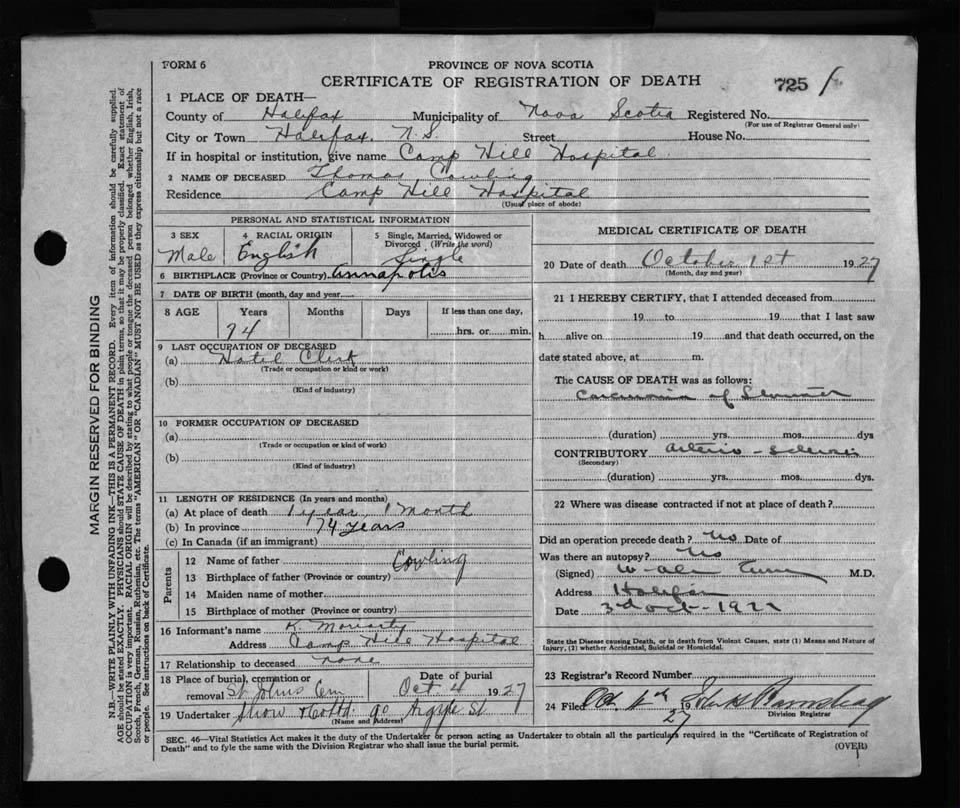 FORM 6
PROVINCE OF NOVA SCOTIA
CERTIFICATE OF REGISTRATION OF DEATH
725
1 PLACE OF DEATH—
County of Halifax Municipality of Nova Scotia Registered No.
(For use of Registrar General only)
City or Town Halifax. N.S. Street House No.
If in hospital or institution, give name Camp Hill Hospital.
2 NAME OF DECEASED Thomas Cowling
Residence Camp Hill Hospital
(Usual place of abode)
PERSONAL AND STATISTICAL INFORMATION
3 SEX Male
4 RACIAL ORIGIN English
5 Single, Married, Widowed or Divorced (Write the word) Single
6 BIRTHPLACE (Province or Country) Annapolis
7 DATE OF BIRTH (month, day and year)
8 AGE Years Months Days If less than one day,
74 hrs. or min.
9 LAST OCCUPATION OF DECEASED
(a) Hotel Clerk
(Trade or occupation or kind or work)
(b)
(Kind of industry)
10 FORMER OCCUPATION OF DECEASED
(a)
(Trade or occupation or kind of work)
(b)
(Kind of industry)
11 LENGTH OF RESIDENCE (In years and months)
(a) At place of death 1 year, 1 Month
(b) In province 74 years
(c) In Canada (if an immigrant)
Parents
12 Name of father Cowling
13 Birthplace of father (Province or country)
14 Maiden name of mother
15 Birthplace of mother (Province or country)
16 Informant's name K. Moriarty
Address Camp Hill Hospital
17 Relationship to deceased none
18 Place of burial, cremation or removal St Johns Cem
Date of burial Oct 4 1927
19 Undertaker Snow 90 Argyle St
(Name and Address)
MEDICAL CERTIFICATE OF DEATH
20 Date of death October 1st 1927
(Month, day and year)
21 I HEREBY CERTIFY, that I attended deceased from
19 to 19 that I last saw
h alive on 19 and that death occurred, on the
date stated above, at m.
The CAUSE OF DEATH was as follows:
Carcinoma of Stomach
(duration) yrs. mos. dys
CONTRIBUTORY Arterio-sclerosis
(Secondary)
(duration) yrs. mos. dys.
22 Where was disease contracted if not at place of death?
Did an operation precede death? No Date of
Was there an autopsy? No
(Signed) M.D.
Address Halifax
Date 3rd Oct-1927
State the Disease causing Death, or in death from Violent Causes, state (1) Means and Nature of
Injury, (2) whether Accidental, Suicidal or Homicidal.
23 Registrar's Record Number
24 Filed Oct 4th 1927
Division Registrar
SEC. 46—Vital Statistics Act makes it the duty of the Undertaker or person acting as Undertaker to obtain all the particulars required in the "Certificate of Registration of
Death" and to fyle the same with the Division Registrar who shall issue the burial permit.
(OVER)
MARGIN RESERVED FOR BINDING
N.B.—WRITE PLAINLY WITH UNFADING INK—THIS IS A PERMANENT RECORD. Every item of information should be carefully supplied.
AGE should be stated EXACTLY. PHYSICIANS should STATE CAUSE OF DEATH in plain terms, so that it may be properly classified. Exact statement of
OCCUPATION is very important. RACIAL ORIGIN will be described by stating to what people or tongue the deceased person belonged whether English, Irish,
Scotch, French, German, Russian, Ruthenian, etc. The terms "AMERICAN" OR "CANADIAN" MUST NOT BE USED as they express citizenship but not a race
or people. See instructions on back of Certificate.